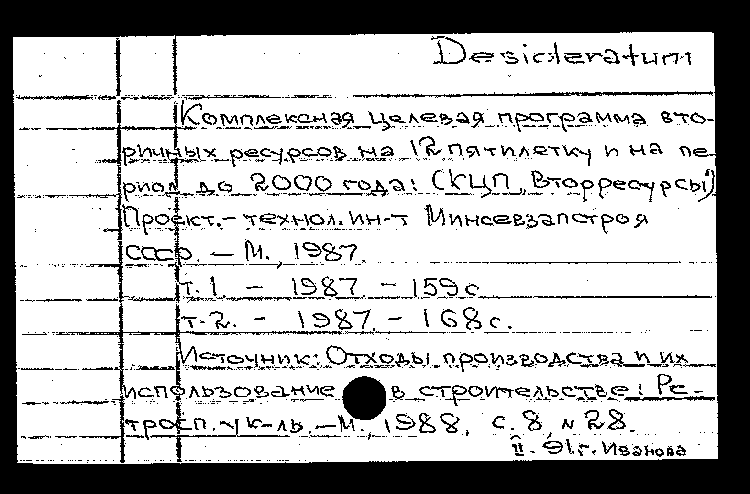 Desideratum
Комплексная целевая программа вто-
ричных ресурсов на 12 пятилетку и на пе-
риод до 2000 года: (КЦП „Вторресурсы")
Проект.- технол. ин-т Минсевзапстроя
СССР. – М., 1987.
т. 1. – 1987. – 159 с.
т. 2. – 1987. – 168 с.
Источник: Отходы производства и их
использование в строительстве: Ре-
тросп. ук-ль. – М., 1988, с. 8, № 28.
II. 91 г. Иванова